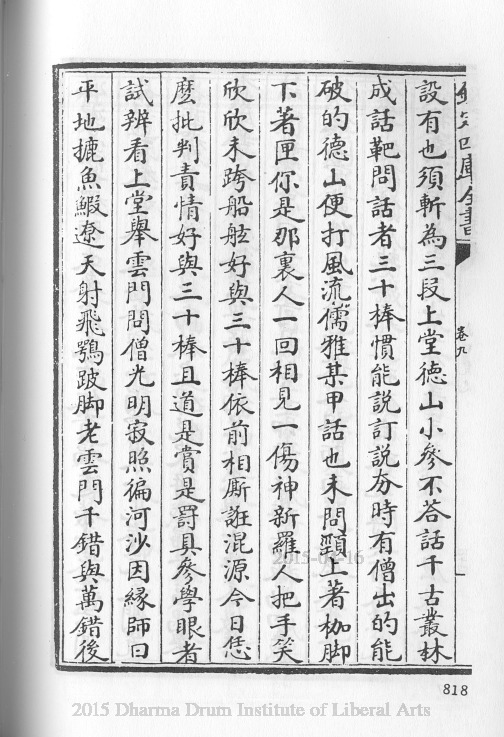 欽定四庫全書
卷九
設有也須斬為三段上堂德山小參不荅話千古叢林
成話靶問話者三十棒慣能說訂說夯時有僧出的能
破的德山便打風流儒雅某甲話也未問頸上著枷脚
下著匣你是那裏人一回相見一傷神新羅人把手笑
欣欣未跨船舷好與三十棒依前相厮誑混源今日恁
麼批判責情好與三十棒且道是賞是罰具參學眼者
試辨看上堂舉雲門問僧光明寂照徧河沙因緣師曰
平地摝魚鰕遼天射飛鶚跛脚老雲門千錯與萬錯後
2015-04-16
818
2015 Dharma Drum Institute of Liberal Arts